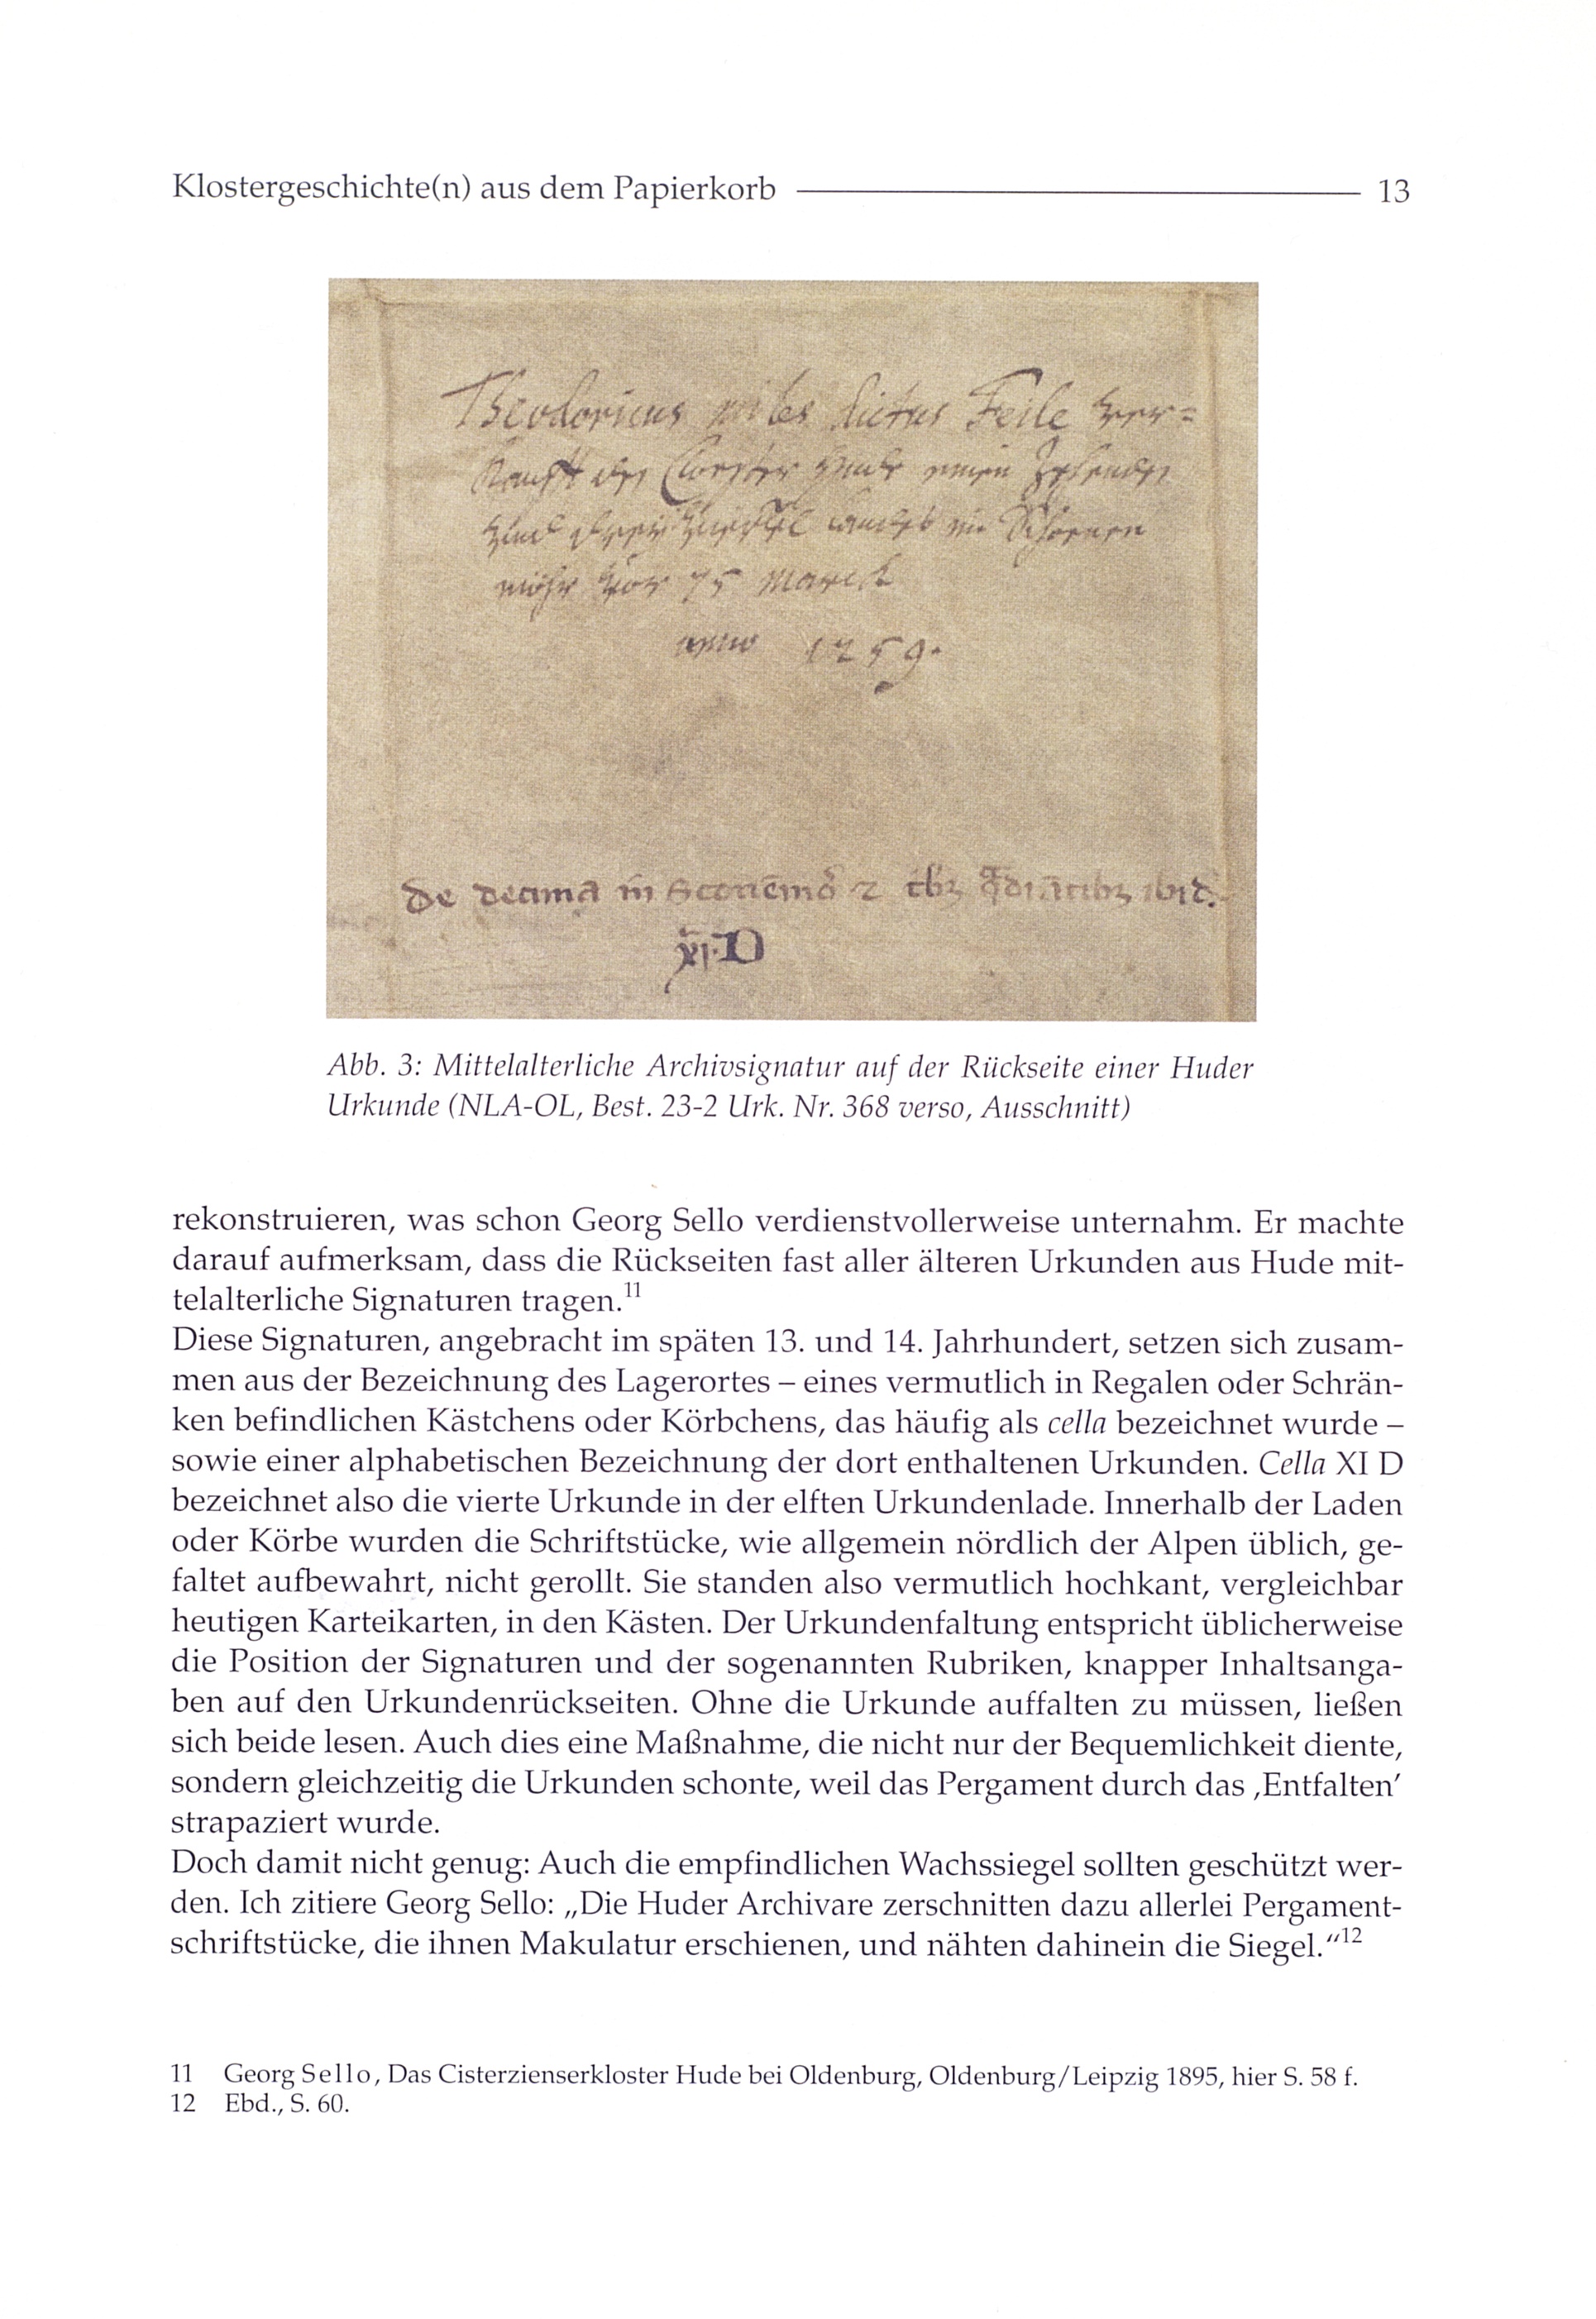 Klostergeschichte(n) aus dem Papierkorb 13
Theodoricus miles dictus Feile ver=
kaufft den Closter Hude einen Zehenden
vnd
möhr vor 75 Marck
anno 1259.
de decima in Sconemo ⁊ tbꝫ ibid.
XI·D
Abb. 3: Mittelalterliche Archivsignatur auf der Rückseite einer Huder
Urkunde (NLA-OL, Best. 23-2 Urk. Nr. 368 verso, Ausschnitt)
rekonstruieren, was schon Georg Sello verdienstvollerweise unternahm. Er machte
darauf aufmerksam, dass die Rückseiten fast aller älteren Urkunden aus Hude mit-
telalterliche Signaturen tragen.11
Diese Signaturen, angebracht im späten 13. und 14. Jahrhundert, setzen sich zusam-
men aus der Bezeichnung des Lagerortes – eines vermutlich in Regalen oder Schrän-
ken befindlichen Kästchens oder Körbchens, das häufig als cella bezeichnet wurde –
sowie einer alphabetischen Bezeichnung der dort enthaltenen Urkunden. Cella XI D
bezeichnet also die vierte Urkunde in der elften Urkundenlade. Innerhalb der Laden
oder Körbe wurden die Schriftstücke, wie allgemein nördlich der Alpen üblich, ge-
faltet aufbewahrt, nicht gerollt. Sie standen also vermutlich hochkant, vergleichbar
heutigen Karteikarten, in den Kästen. Der Urkundenfaltung entspricht üblicherweise
die Position der Signaturen und der sogenannten Rubriken, knapper Inhaltsanga-
ben auf den Urkundenrückseiten. Ohne die Urkunde auffalten zu müssen, ließen
sich beide lesen. Auch dies eine Maßnahme, die nicht nur der Bequemlichkeit diente,
sondern gleichzeitig die Urkunden schonte, weil das Pergament durch das ‚Entfalten'
strapaziert wurde.
Doch damit nicht genug: Auch die empfindlichen Wachssiegel sollten geschützt wer-
den. Ich zitiere Georg Sello: „Die Huder Archivare zerschnitten dazu allerlei Pergament-
schriftstücke, die ihnen Makulatur erschienen, und nähten dahinein die Siegel."12
11 Georg Sello, Das Cisterzienserkloster Hude bei Oldenburg, Oldenburg/Leipzig 1895, hier S. 58 f.
12 Ebd., S. 60.